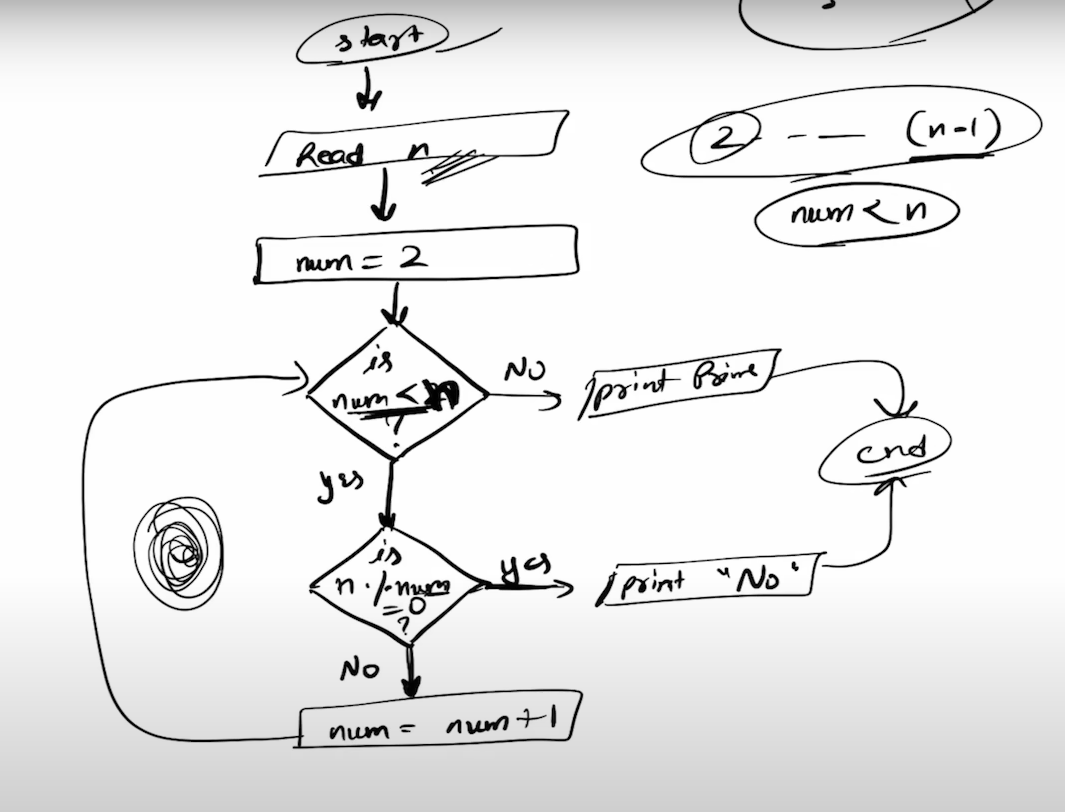 start
Read n
2 - - — (n-1)
num < n
num = 2
is
num < n
?
No
print Prime
end
yes
is
n % num
= 0
?
yes
print "No"
No
num = num + 1